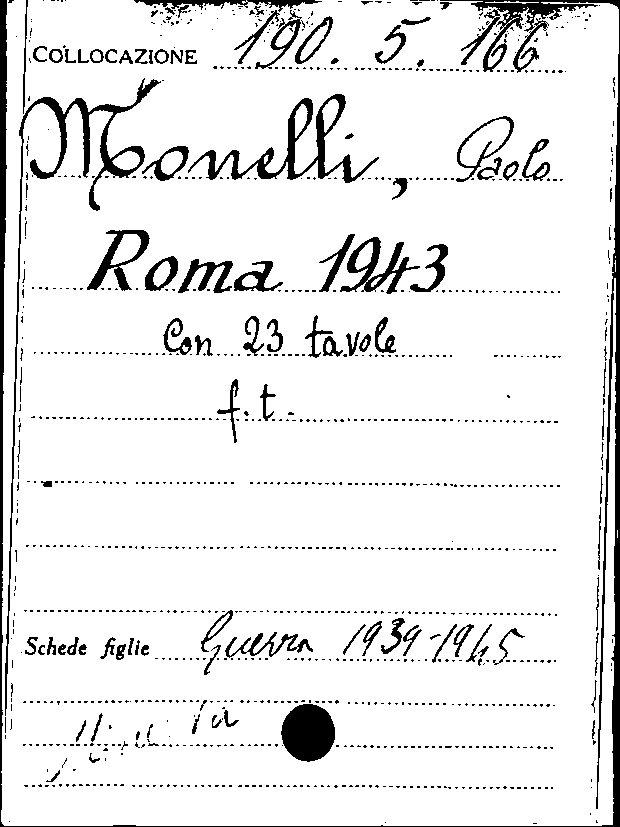 COLLOCAZIONE 190. 5. 166
Monelli, Paolo
Roma 1943
Con 23 tavole
f.t.
Schede figlie Guerra 1939-1945